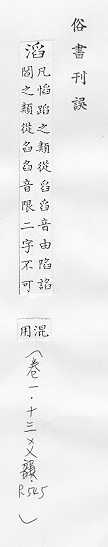 俗書刊誤
滔
凡慆蹈之類從舀舀音由陷諂
閻之類從臽臽音限二字不可
混
用
(卷一.十三爻韻
)